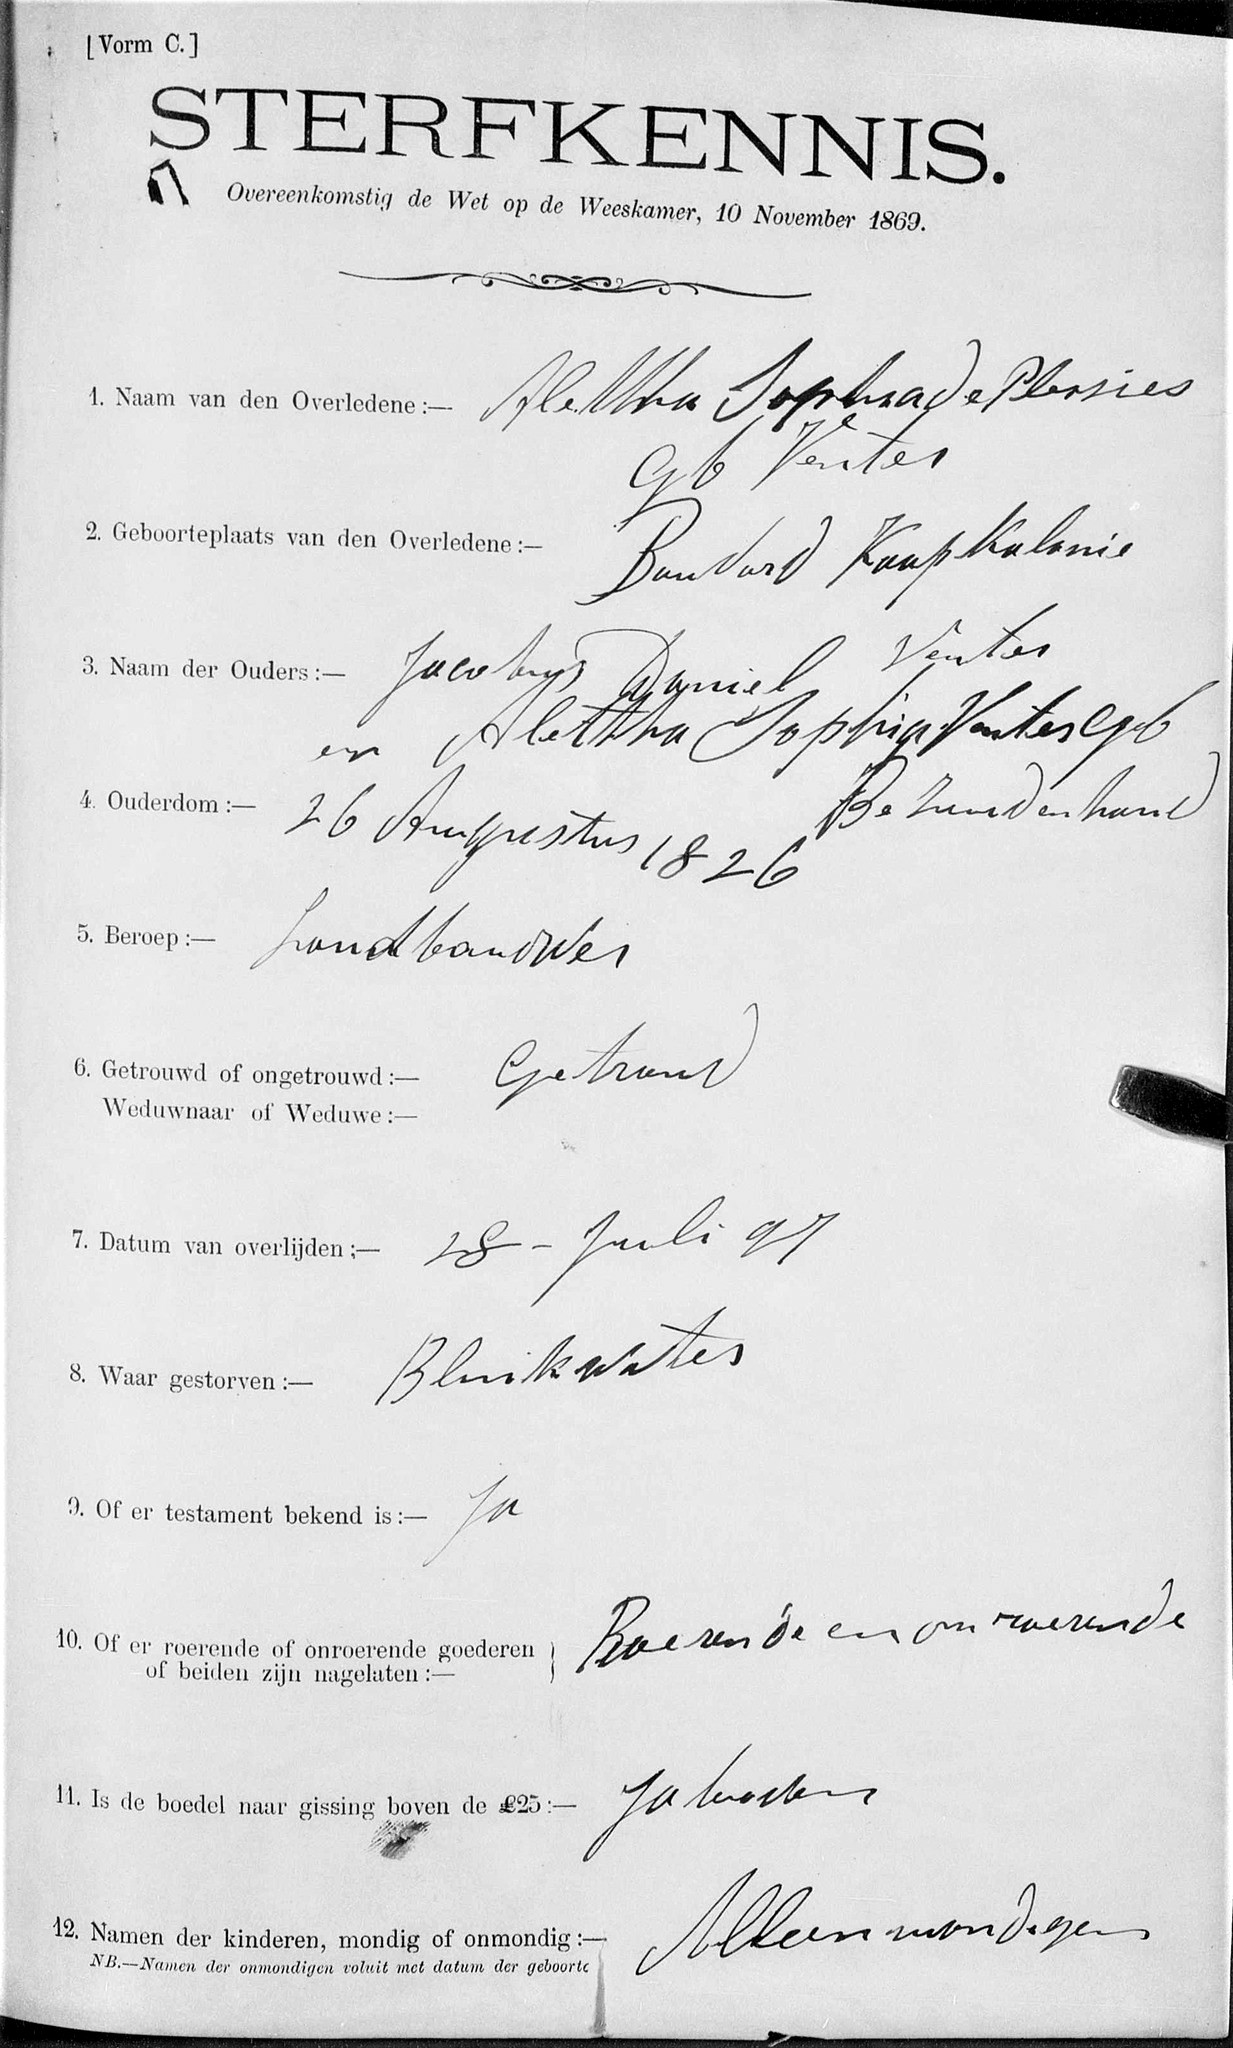 [Vorm C.]
STERFKENNIS.
Overeenkomstig de Wet op de Weeskamer, 10 November 1869.
1. Naam van den Overledene:— Alettha Sophia de Plessies
gb Venter
2. Geboorteplaats van den Overledene:— Kaap Kalonie
3. Naam der Ouders:— Jacobus Daniel Venter
en Alettha Sophia Venter geb
Bezuudenhoud
4. Ouderdom:— 26 Augustus 1826
5. Beroep:— Landbouwer
6. Getrouwd of ongetrouwd:— Getroud
Weduwnaar of Weduwe:—
7. Datum van overlijden:— 28 - Juli 97
8. Waar gestorven:— Blinkwater
9. Of er testament bekend is:— Ja
10. Of er roerende of onroerende goederen
of beiden zijn nagelaten:— Roerende en onroerende
11. Is de boedel naar gissing boven de £25:— Ja
12. Namen der kinderen, mondig of onmondig:— Alleen mondegen
NB.—Namen der onmondigen voluit met datum der geboorte